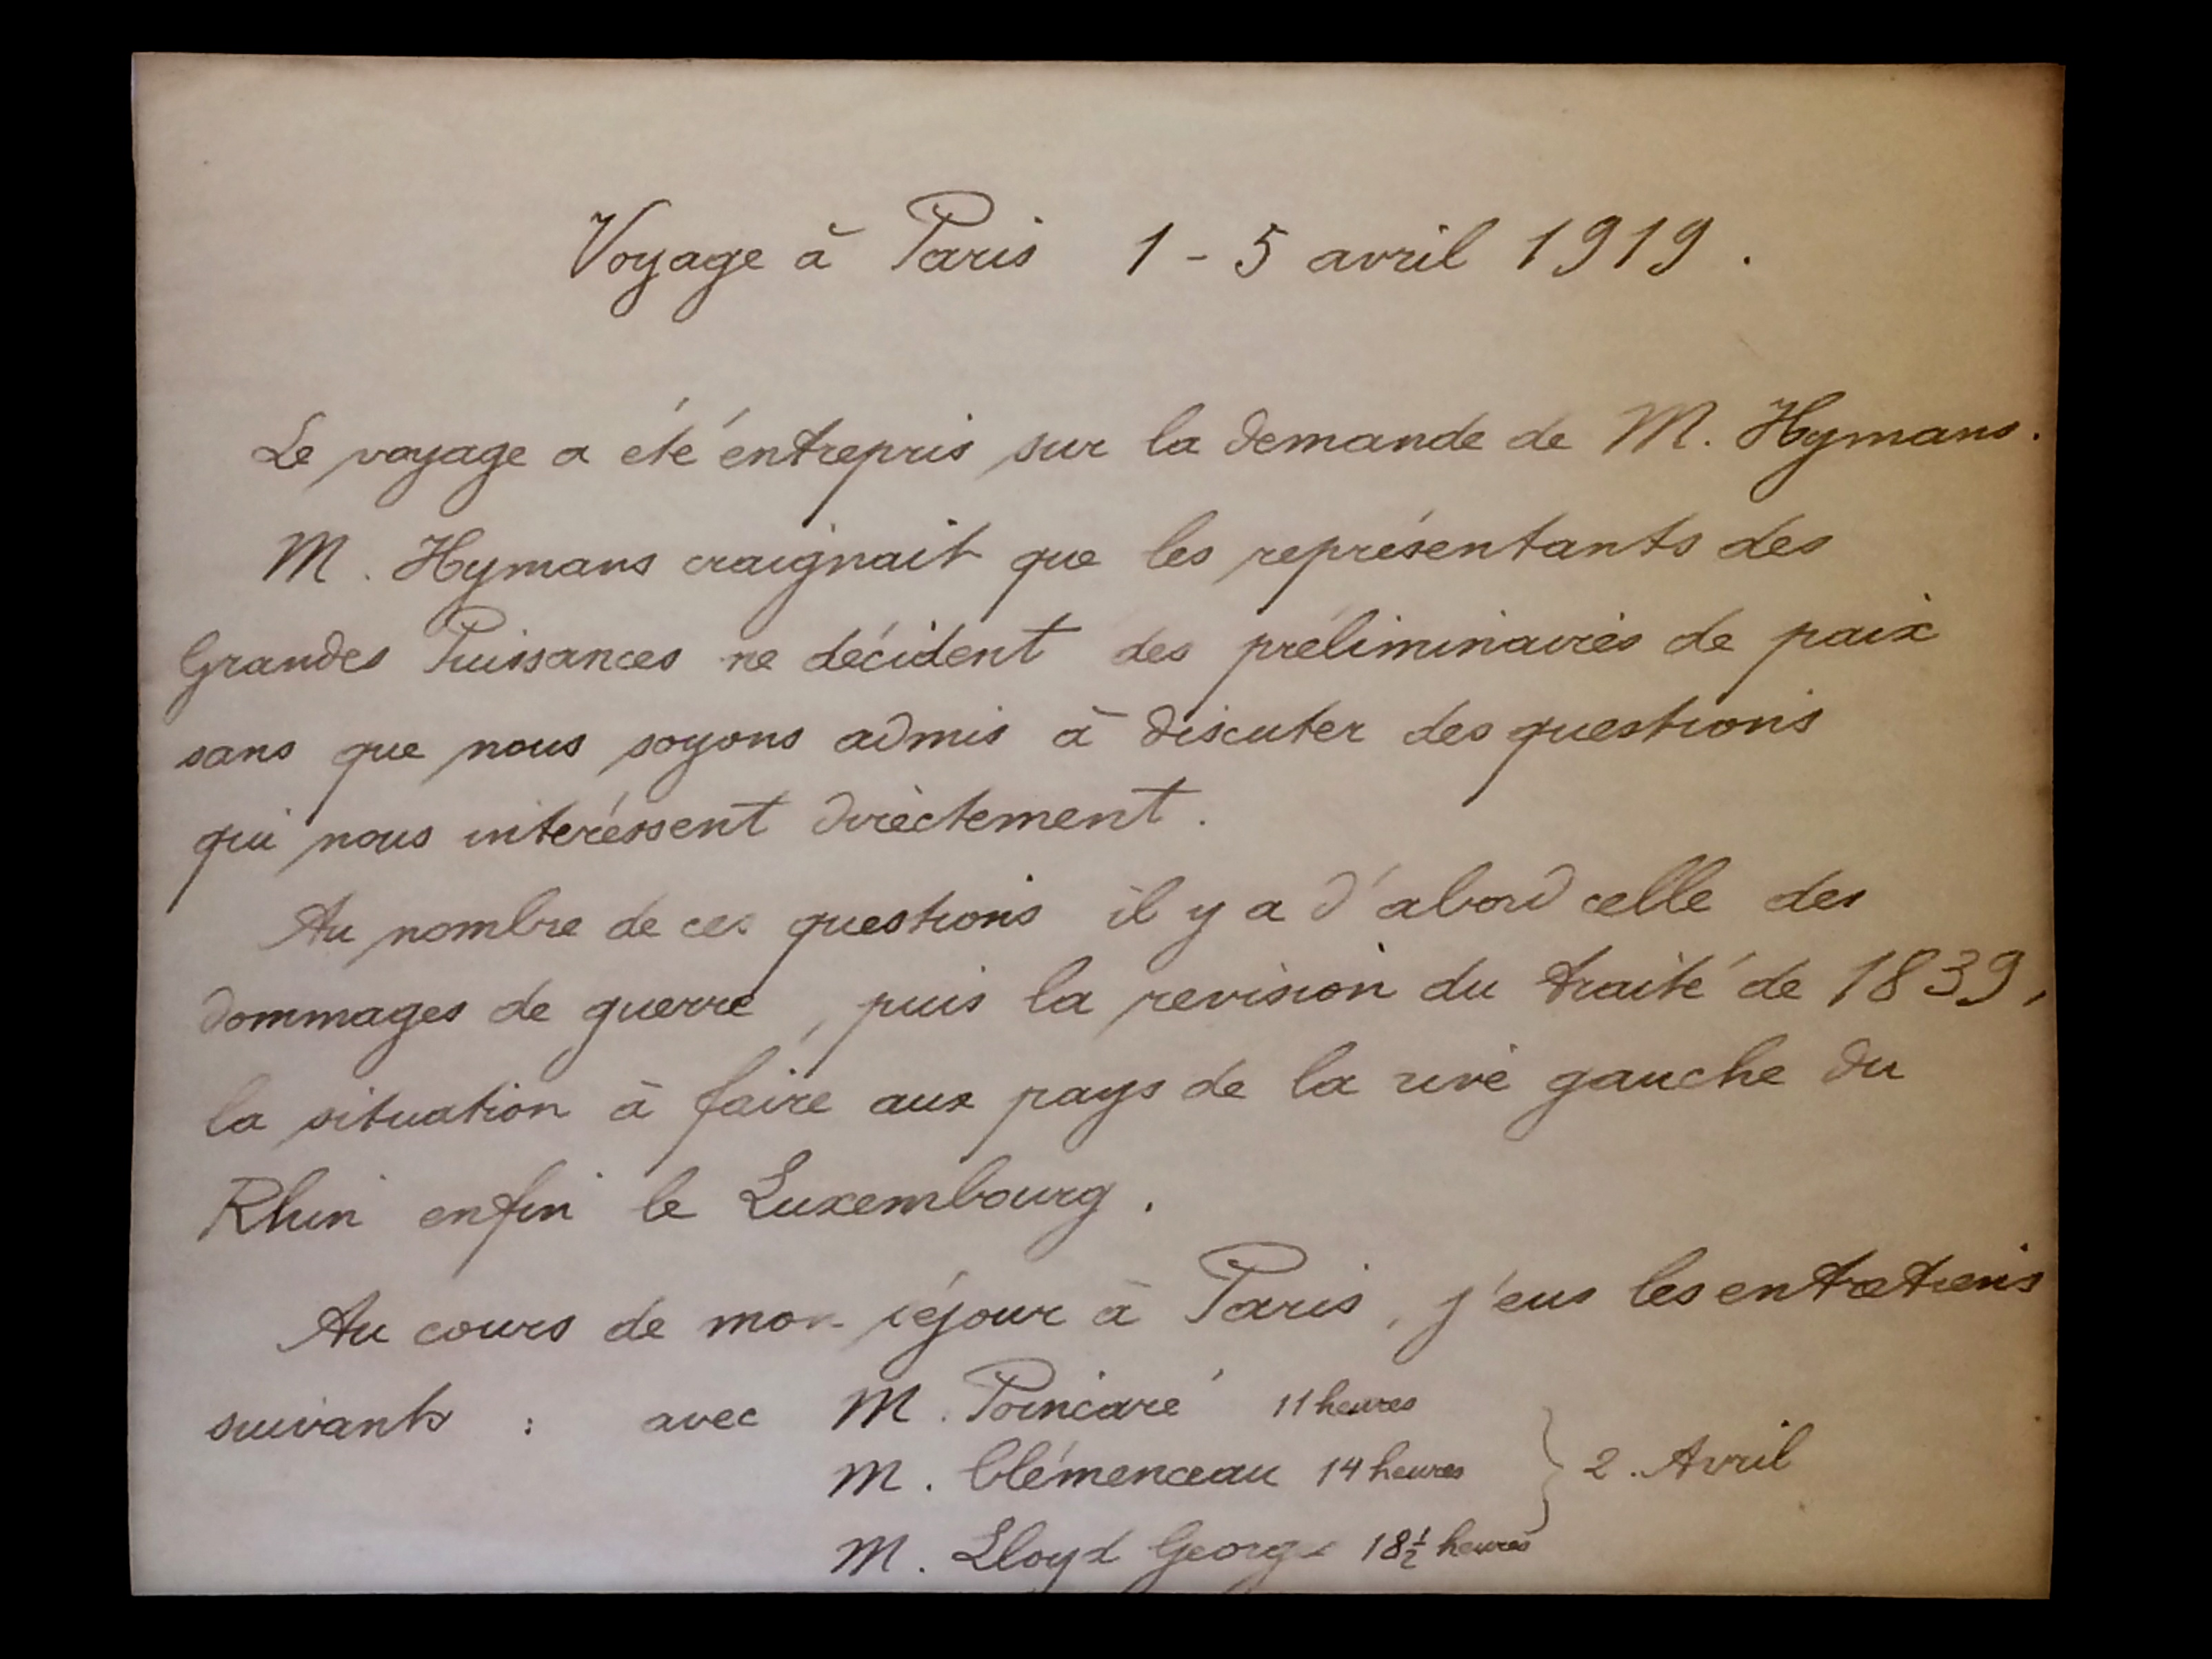 Voyage à Paris 1 - 5 avril 1919.
Le voyage a été entrepris sur la demande de M. Hymans.
M. Hymans craignait que les représentants des
Grandes Puissances ne décident des préliminaires de paix
sans que nous soyons admis à discuter des questions
qui nous intéressent directement.
Au nombre de ces questions il y a d'abord celle des
dommages de guerre, puis la revision du traité de 1839,
la situation à faire aux pays de la rive gauche du
Rhin enfin le Luxembourg.
Au cours de mon séjour à Paris, j'eus les entretiens
suivants : avec M. Poincaré 11 heures
M. Clémenceau 14 heures } 2. Avril
M. Lloyd George 18½ heures